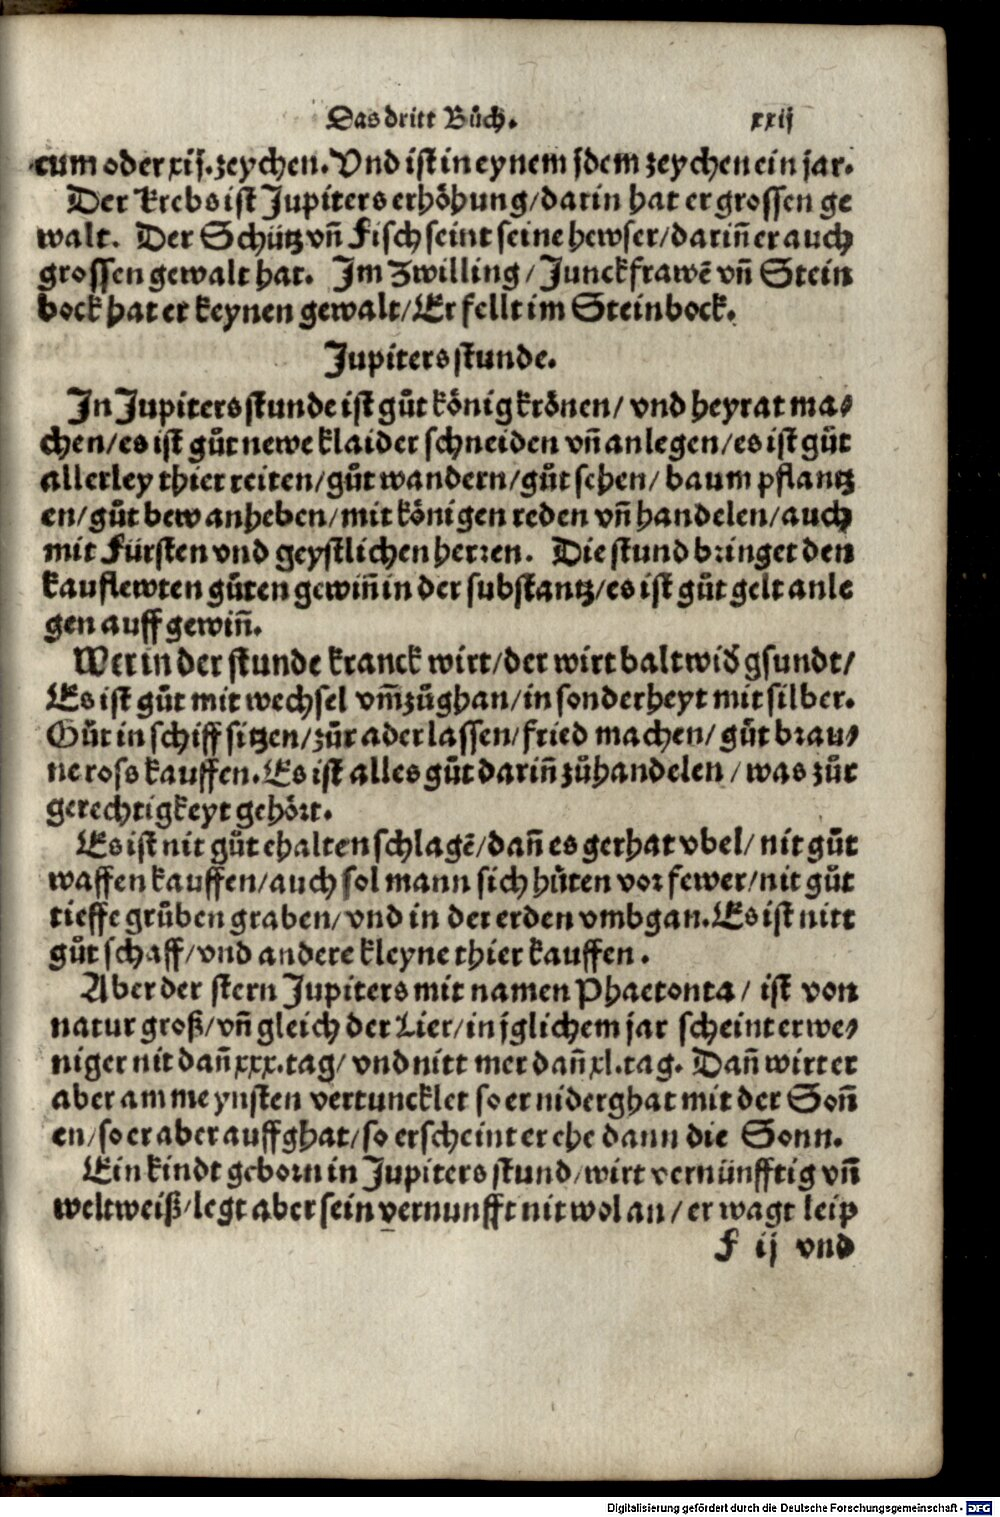 Das dritt Bůch. xxij
cum oder xij. zeychen. Vnd ist in eynem jdem zeychen ein jar.
Der Krebs ist Jupiters erhöhung/ darin hat er grossen ge
walt. Der Schütz vñ Fisch seint seine hewser/ dariñ er auch
grossen gewalt hat. Im Zwilling/ Junckfrawẽ vñ Stein
bock hat er keynen gewalt/ Er fellt im Steinbock.
Jupiters stunde.
In Jupiters stunde ist gůt könig krönen/ vnd heyrat ma-
chen/ es ist gůt newe klaider schneiden vñ anlegen/ es ist gůt
allerley thier reiten/ gůt wandern/ gůt sehen/ baum pflantz
en/ gůt bew anheben/ mit königen reden vñ handelen/ auch
mit Fürsten vnd geystlichen herren. Die stund bringet den
kauflewten gůten gewiñ in der substantz/ es ist gůt gelt anle
gen auff gewiñ.
Wer in der stunde kranck wirt/ der wirt balt wiď gsundt/
Es ist gůt mit wechsel vm̃zůghan/ in sonderheyt mit silber.
Gůt in schiff sitzen/ zůr aderlassen/ fried machen/ gůt brau-
ne ross kauffen. Es ist alles gůt dariñ zůhandelen/ was zůr
gerechtigkeyt gehört.
Es ist nit gůt ehalten schlagẽ/ dañ es gerhat vbel/ nit gůt
waffen kauffen/ auch sol mann sich hůten vor fewer/ nit gůt
tieffe grůben graben/ vnd in der erden vmbgan. Es ist nitt
gůt schaff/ vnd andere kleyne thier kauffen.
Aber der stern Jupiters mit namen Phaetonta/ ist von
natur groß/ vñ gleich der Lier/ in jglichem jar scheint er we-
niger nit dañ xxx. tag/ vnd nitt mer dañ xl. tag. Dañ wirt er
aber am meynsten vertuncklet so er niderghat mit der Soñ
en/ so er aber auffghat/ so erscheint er ehe dann die Sonn.
Ein kindt geborn in Jupiters stund/ wirt vernünfftig vñ
weltweiß/ legt aber sein vernunfft nit wol an/ er wagt leip
F ij vnd
Digitalisierung gefördert durch die Deutsche Forschungsgemeinschaft - DFG